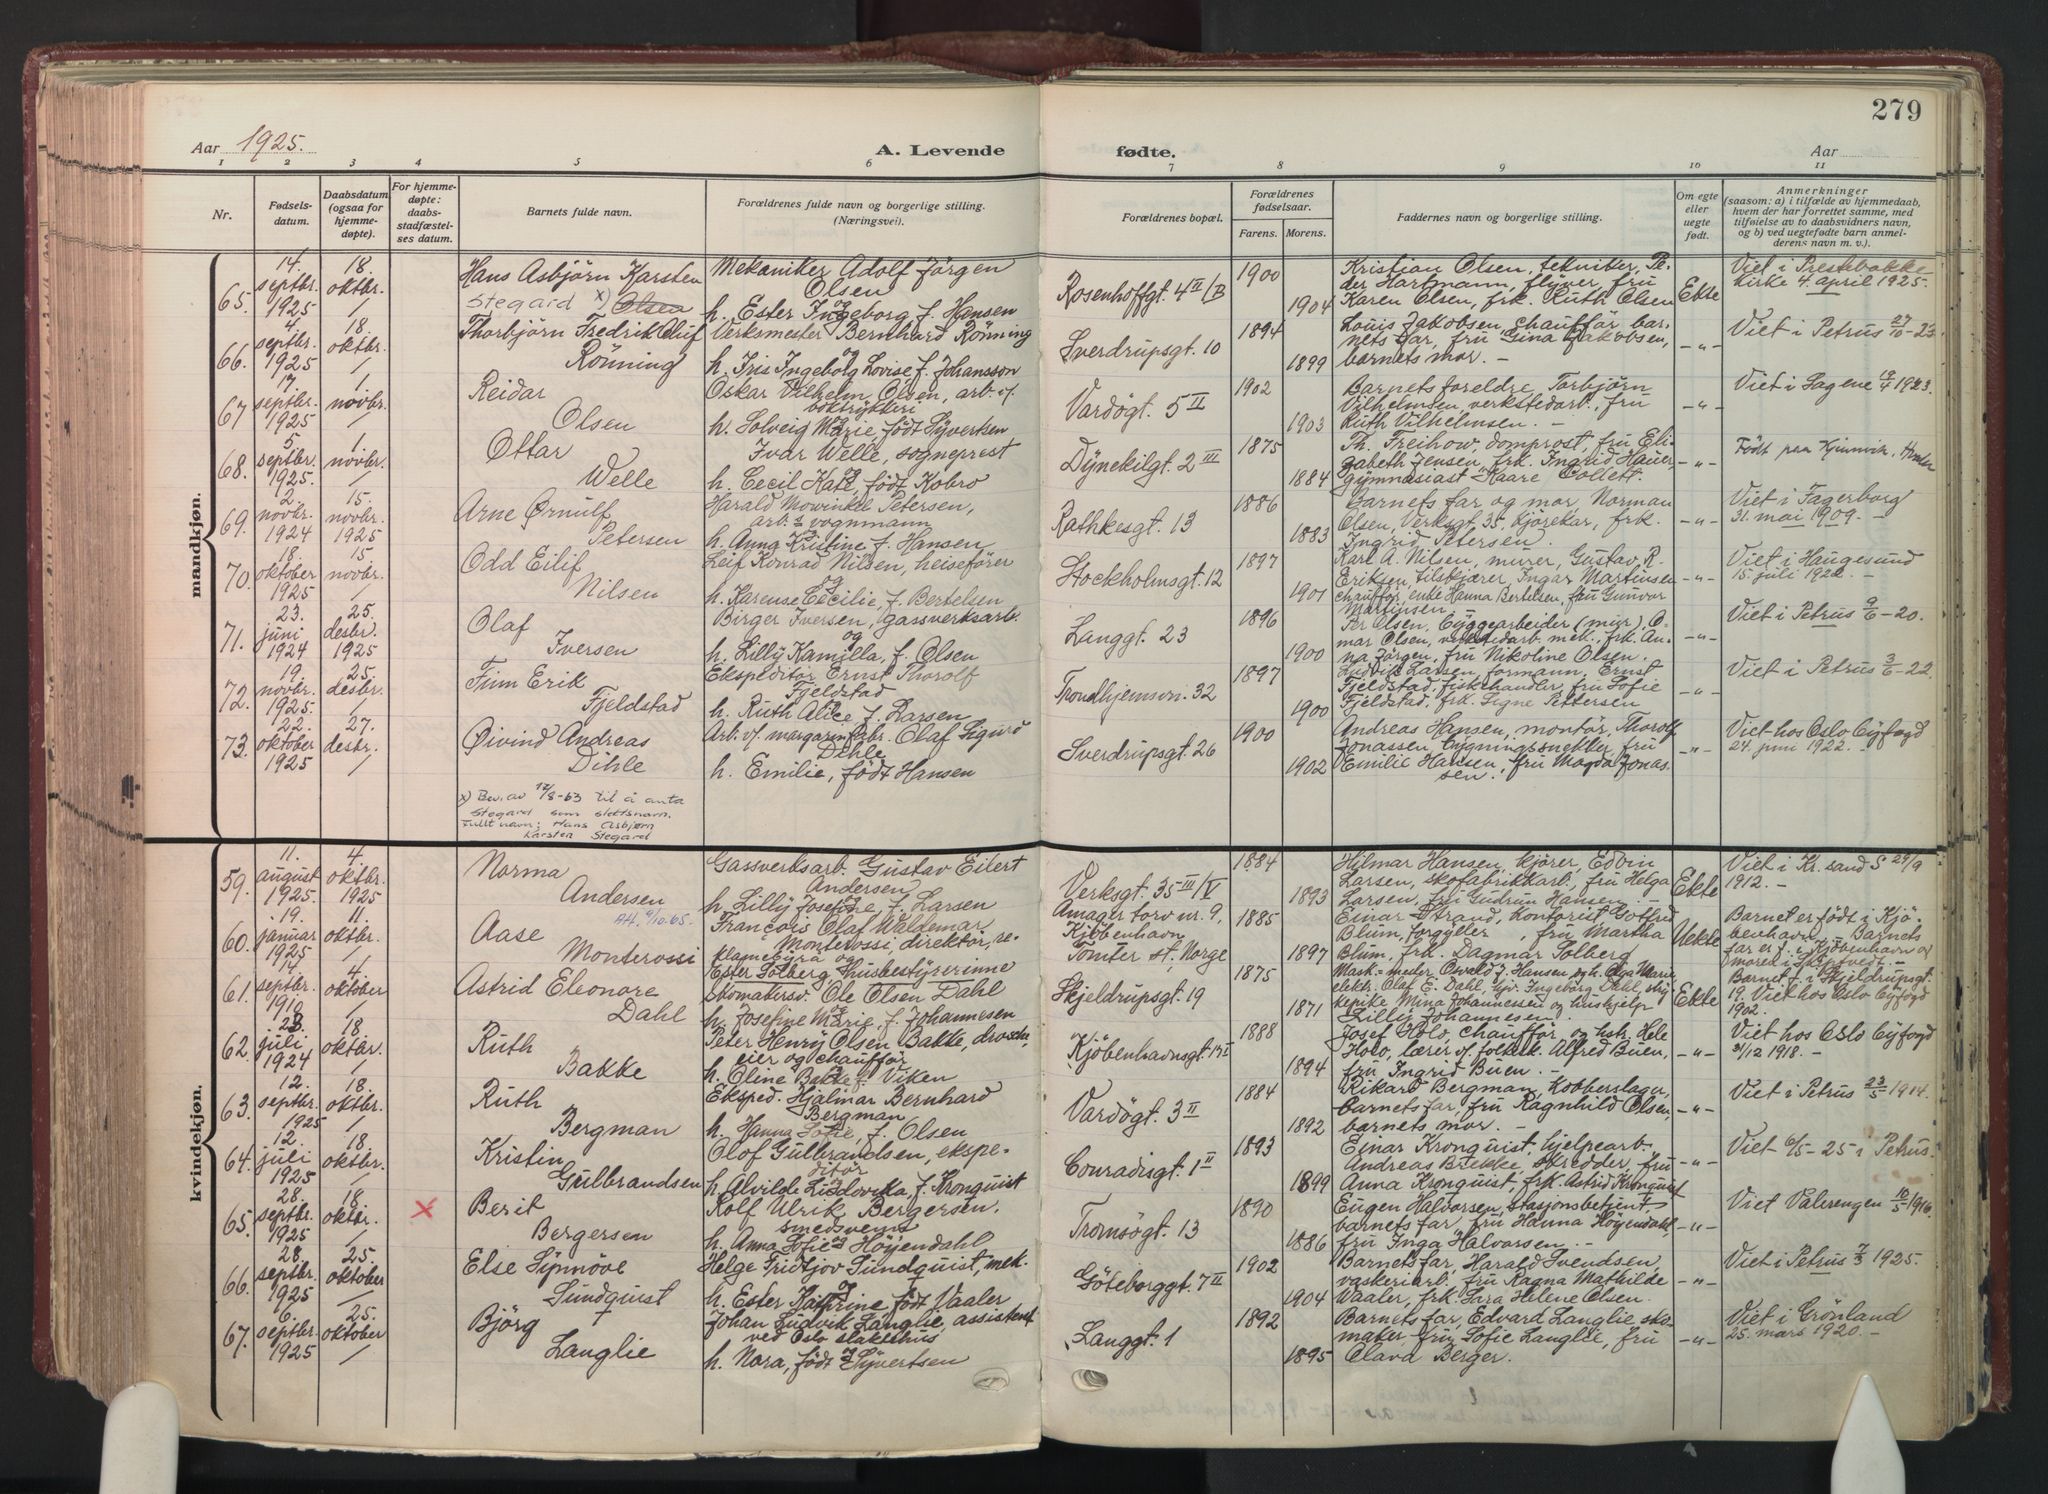 279
Aar 1925. A. Levende fødte. Aar
1 2 3 4 5 6 7 8 9 10 11
Nr. | Fødselsdatum. | Daabsdatum (ogsaa for hjemmedøpte). | For hjemmedøpte: daabsstadfæstelses datum. | Barnets fulde navn. | Forældrenes fulde navn og borgerlige stilling. (Næringsvei). | Forældrenes bopæl. | Forældrenes fødselsaar. Farens. Morens. | Faddernes navn og borgerlige stilling. | Om egte eller uegte født. | Anmerkninger (saasom: a) i tilfælde av hjemmedaab, hvem der har forrettet samme, med tilføielse av to daabsvidners navn, og b) ved uegtefødte barn anmelderens navn m. v.).
mandkjøn.
65. | 14. septbr. 1925 | 18 oktbr. / | Hans Asbjörn Karsten Stegard x) Olsen | Mekaniker Adolf Jörgen Olsen og h. Ester Ingeborg f. Hansen | Rosenhoffgt. 4 II/B | 1900 1904 | Kristian Olsen, tekniker, Peder Hartmann, flyver, fru Karen Olsen, frk. Ruth Olsen | Ekte | Viet i Prestebakke kirke 4 april 1925.
66. | 4. septbr. 1925 | 18. oktbr. / | Thorbjörn Fredrik Oluf Rönning | Verksmester Bernhard Rönning og h. Iris Ingeborg Lovise f. Johansson | Sverdrupsgt. 10 | 1894 1899 | Louis Jakobsen, chauffør, barnets far, fru Gina Jakobsen, barnets mor. - | -"- | Viet i Petrus 27/10 - 23
67 | 17 septbr. 1925 | 1 novbr. / | Reidar Olsen | Oskar Vilhelm Olsen, arb. v/ boktrykkeri og h. Solveig Marie, født Syvertsen | Vardögt. 5 II | 1902 1903 | Barnets foreldre, Torbjörn Vilhelmsen verkstedarb., fru Ruth Vilhelmsen. - | -"- | Viet i Sagene /4 1923.
68. | 5 septbr. 1925. | 1. novbr. / | Ottar Welle | Ivar Welle, sogneprest og h. Cecil Kate, født Kobro | Dynekilgt. 2 III | 1875 1884 | Th. Freihow, domprost, fru Elizabeth Jensen, frk. Ingrid Hauer, gymnasiast Kaare Collett. | -"- | Født paa
69. | 2. novbr. 1924 | 15. novbr. 1925 | Arne Ørnulf Petersen | Harald Mowinkel Petersen, arb. & vognmann h. Anna Kristine f. Hansen | Rathkesgt. 13 | 1886 1883 | Barnets far og mor, Norman Olsen, Verksgt 35, kjörekar, frk. Ingrid Petersen. | -"- | Viet i Fagerborg 31. mai 1909. -
70. | 18. oktober 1925 | 15 novbr. / | Odd Eilif Nilsen | Leif Konrad Nilsen, heisefører og h. Karense Cecilie, f. Bertelsen | Stockholmsgt. 12 | 1897 1901 | Karl A. Nilsen, murer, Gustav R. Eriksen, tilskjærer, Ingar Martinsen chauffør, enke Hanna Bertelsen, fru Gunvor Martinsen. | -"- | Viet i Haugesund 15. juli 1922. -
71. | 23. juni 1924 | 25. desbr. 1925 | Olaf Iversen | Birger Iversen, gassverksarb. og h. Lilly Kamilla, f. Olsen | Langgt. 23 | 1896 1900 | Per Olsen, byggearbeider (mur), Omar Olsen, verkstedarb. mek., frk. Anna Jörgen, fru Nikoline Olsen. | -"- | Viet i Petrus 9/6 - 20.
72. | 19 novbr. 1925. | 25. desbr. / | Finn Erik Fjeldstad | Ekspeditör Ernst Thorolf Fjeldstad h. Ruth Alice f. Larsen | Trondhjemsvn. 32 | 1897 1900 | Ludvik Larsen formann, Ernst Fjeldstad, fiskehandler, fru Sofie Fjeldstad, frk. Signe Pettersen | -"- | Viet i Petrus 3/6 - 22.
73. | 22. oktober 1925 | 27. desbr. / | Øivind Andreas Dihle | Arb. v/ margarinfabr. Olaf Sigurd Dihle h. Emilie, født Hansen | Sverdrupsgt. 26 | 1900 1902 | Andreas Hansen, montör, Thorolf Jonassen, bygningssnekker, fru Emilie Hansen, fru Magda Jonassen. | -"- | Viet hos Oslo Byfogd 24. juni 1922. -
x) Bev. av 12/8-63 til å anta
Stegard som slektsnavn.
Fullt navn: Hans Asbjørn
Karsten Stegard
kvindekjøn.
59. | 11. august 1925. | 4. oktbr. 1925 | Norma Andersen | Gassverksarb. Gustav Eilert Andersen og h. Lilly Josefine f. Larsen | Verksgt. 35 III/V | 1884 1893 | Hilmar Hansen, kjører, Edvin Larsen, skofabrikkarb., fru Helga Larsen, fru Gudrun Hansen. - | Ekte | Viet i Kr. sand S 29/9 1912. -
60. | 19. januar 1925 | 11. oktbr. / | AH. 9/10 65. Aase Monterossi | François Olaf Waldemar Monterossi, direktör, reklamebyrå og Ester Solberg, husbestyrerinne | Amager torv nr. 9, Kjöbenhavn Tomter st., Norge | 1885 1897 | Einar Strand, kontorist Gotfred Blum, forgyller, fru Martha Blum, frk. Dagmar Solberg | Uekte | Barnet er født i Kjöbenhavn. Barnets far er f. i Kjöbenhavn og moren i Skiptvedt. -
61. | 14 septbr. 1910 | 4. oktober / | Astrid Eleonore Dahl | Skomakersv. Ole Olsen Dahl og h. Josefine Marie, f. Johannesen | Skjeldrupsgt. 19 | 1875 1871 | Mask.mester Osvald J. Hansen, og h. Olga Marie, elektr. Olaf E. Dahl, Ingeborg Dahl, strykepike Mina Johannessen og hushjelp Lilly Johannesen. | Ekte | Barnet f. i Skjeldrupsgt. 19. Viet hos Oslo Byfogd 1902. -
62. | 23. juli 1924 | 18 oktbr. / | Ruth Bakke | Peter Henry Olsen Bakke, droscheeier og chauffør og h. Oline Bakke f. Viken | Kjöbenhavnsgt. | 1888 1894 | Josef Holo, chauffør og hsh. Hele Holo, lærer v/ folkesk. Alfred Buen, fru Ingrid Buen. - | -"- | Viet hos Oslo Byfogd 31/12 1918. -
63. | 12. septbr. 1925 | 18. oktbr. / | Ruth Bergman | Eksped. Hjalmar Bernhard Bergman h. Hanna Sofie, f. Olsen | Vardögt. 3 II | 1884 1892 | Rikard Bergman, kobberslager, barnets far, fru Ragnhild Olsen, barnets mor. - | -"- | Viet i Petrus 23/5 1914.
64. | 12. juli 1925 | 18. oktbr. / | Kristin Gulbrandsen | Olof Gulbrandsen, ekspeditör og h. Alvilde Ludovika, f. Kronquist | Conradisgt. 1 II | 1893 1899 | Einar Kronquist, hjelpearb. Andreas Brekke, skredder, fru Anna Kronquist, frk. Astrid Kronquist | -"- | Viet 6/5 - 25 i Petrus.
65. | 28. septbr. 1925 | 18 oktbr. / | x | Berit Bergersen | Rolf Ulrik Bergersen, smedsvenn og h. Anna Sofie Höyendahl | Tromsögt. 13 | 1890 1886 | Eugen Halvorsen, stasjonsbetjent, barnets far, fru Hanna Höyendahl, fru Inga Halvorsen. - | -"- | Viet Vålerengen 10/5 1916.
66. | 28. septbr. 1925 | 25. oktober / | Else Synnöve Sundquist | Helge Fridtjov Sundquist, mek. og h. Ester Kathrine, født Vaaler | Göteborggt. 7 II | 1902 1904 | Barnets far, Harald Svendsen, vaskeriarb. fru Ragna Mathilde Vaaler, frk. Sara Helene Olsen. | -"- | Viet i Petrus 7/3 1925.
67. | 6. septbr. 1925 | 25. oktober / | Björg Langlie | Johan Ludvik Langlie, assistent ved Oslo slakthus og h. Nora, født Syvertsen | Langgt. 1 | 1892 1895 | Barnets far, Edvard Langlie skomaker fru Sofie Langlie, fru Clara Berger. | -"- | Viet i Grönland 25. mars 1920. -